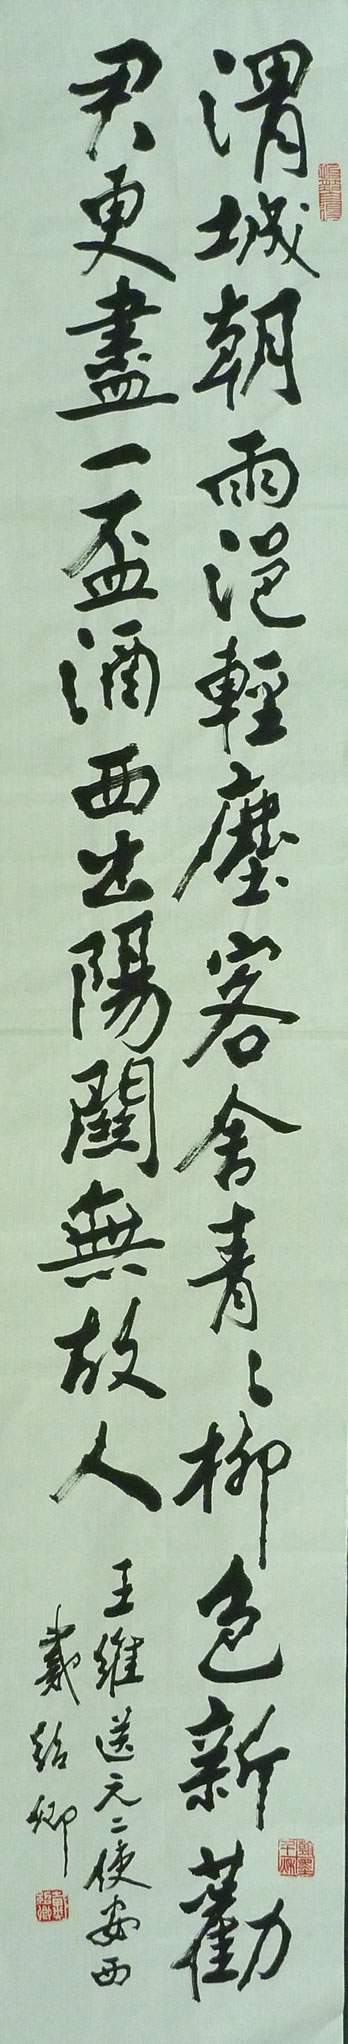 渭城朝雨浥輕塵客舍青々柳色新勸
君更盡一盃酒西出陽關無故人
王維送元二使安西
戴